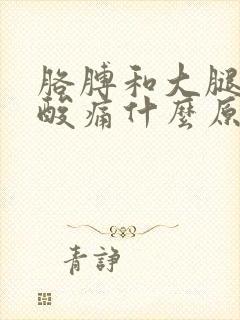 胳膊和大腿
酸痛什麼原
青諍